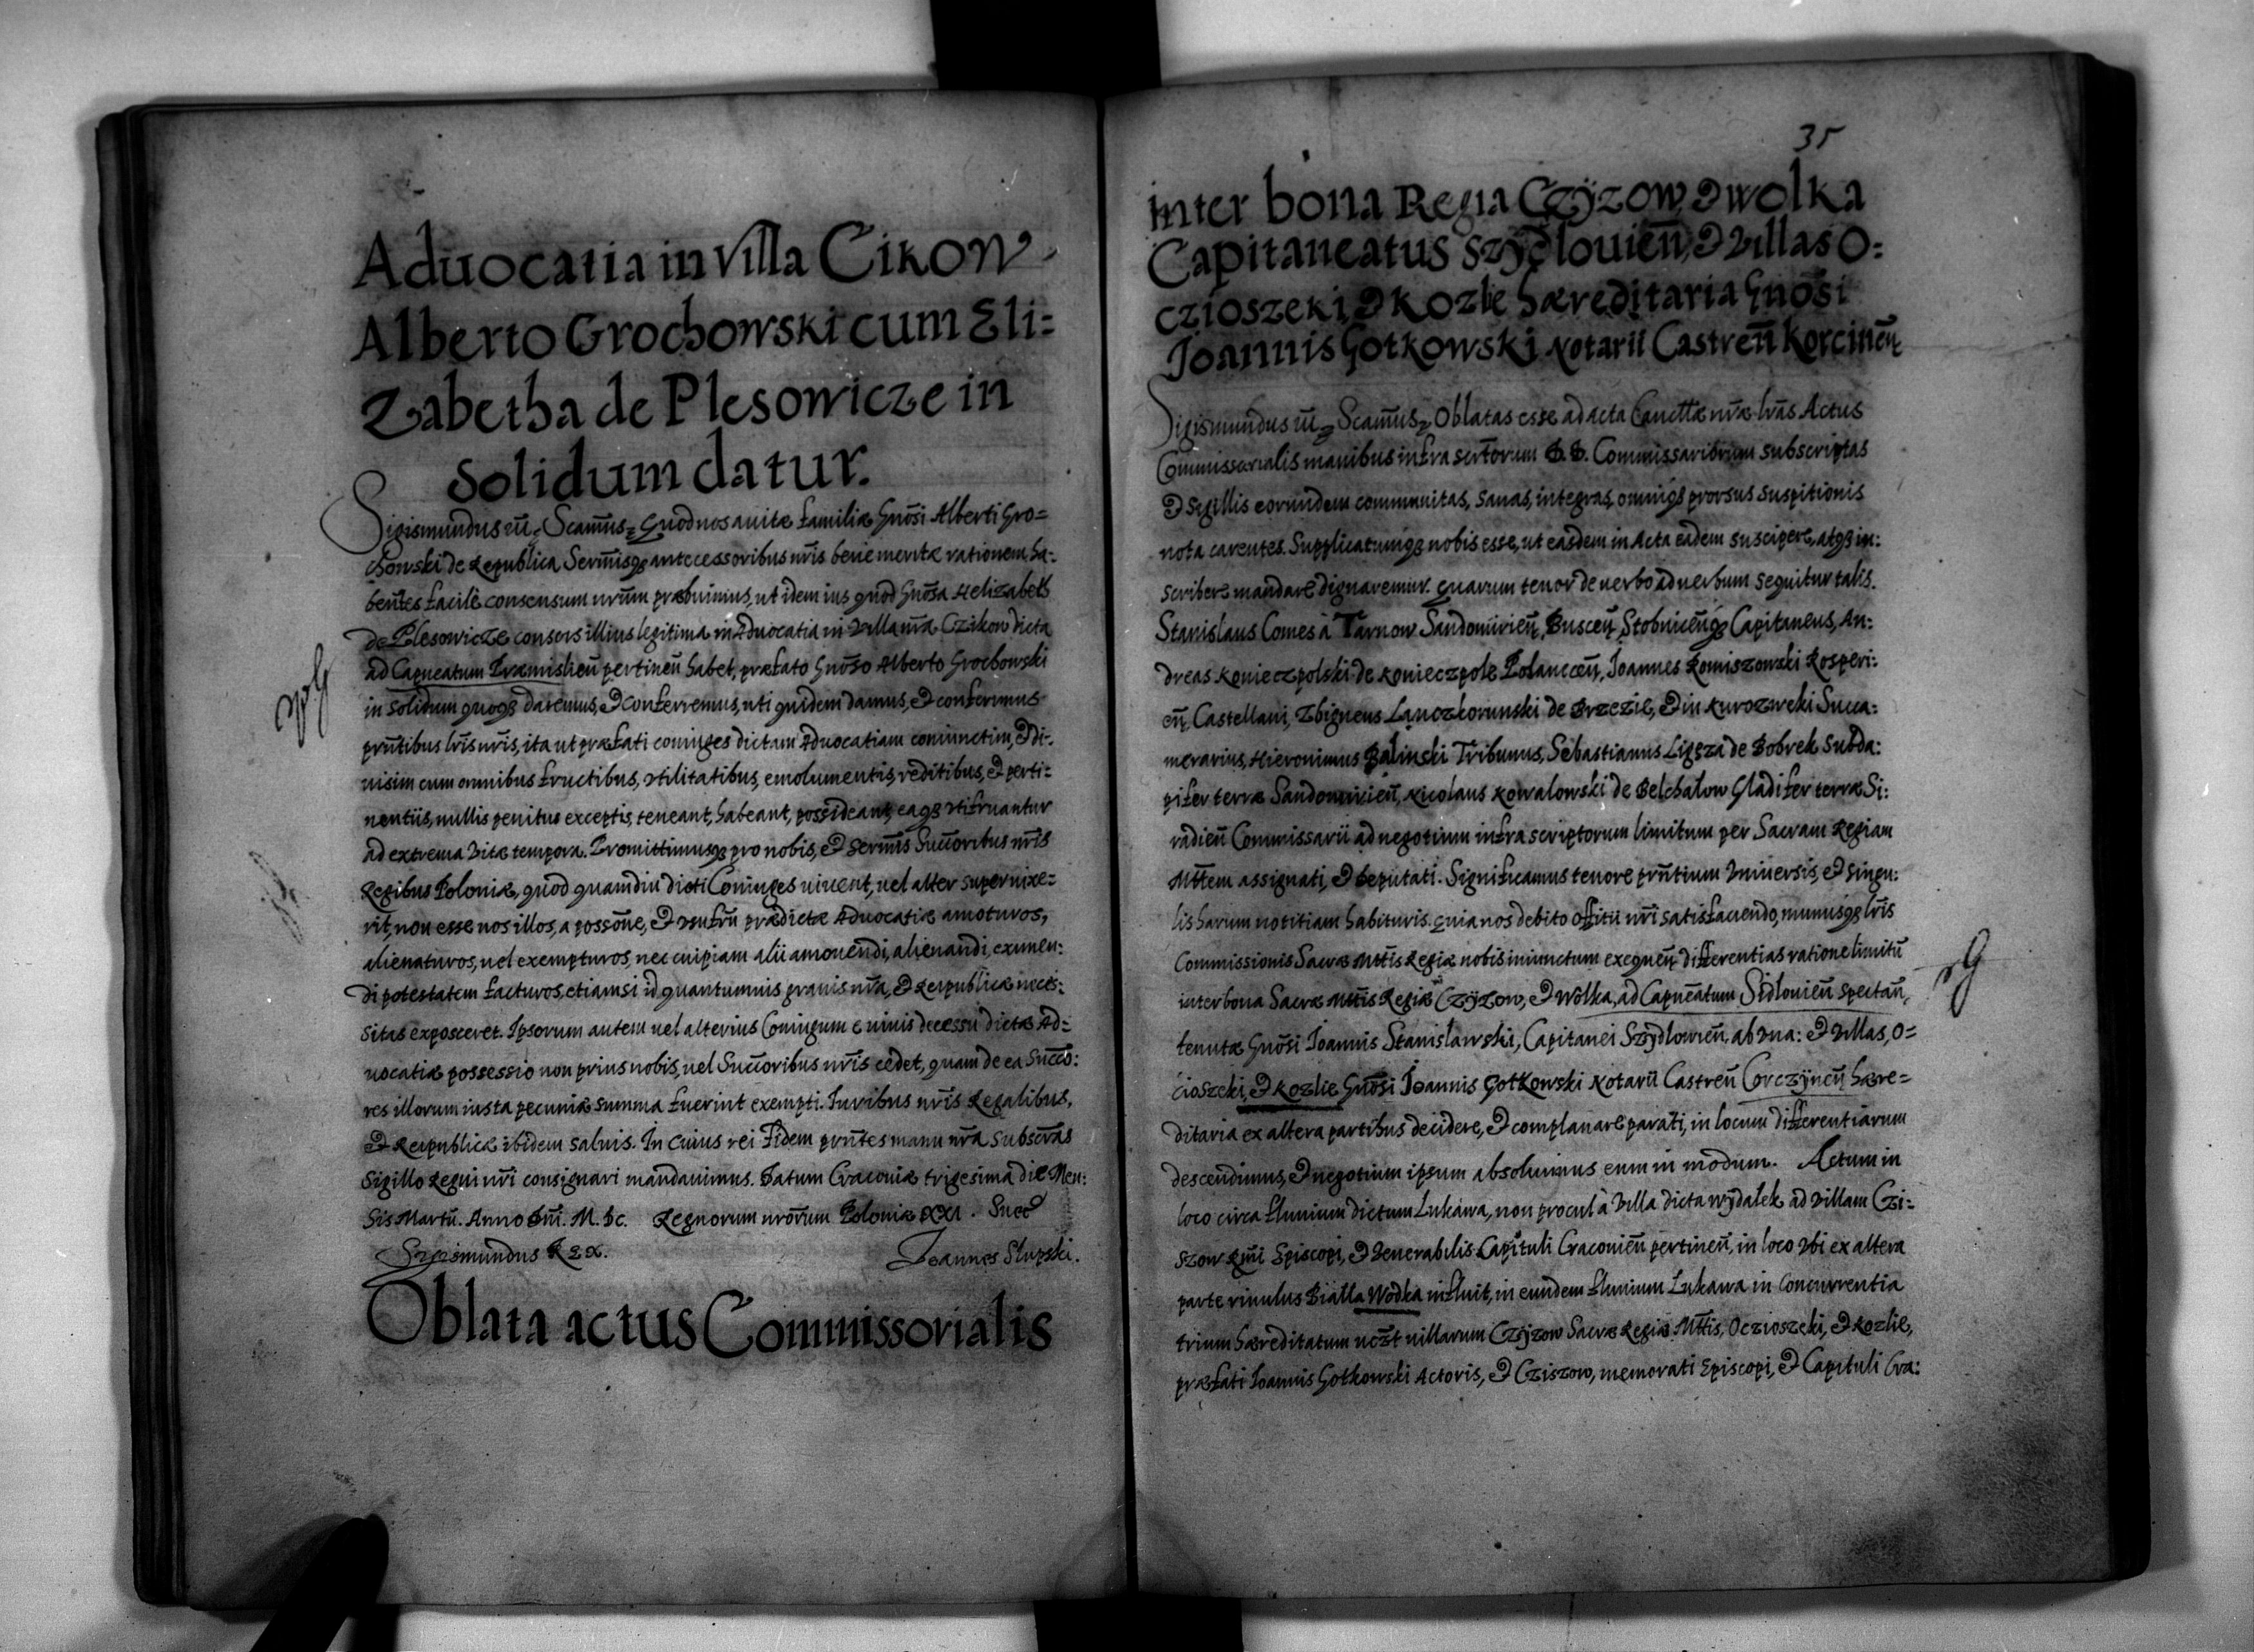 Aduocatia in villa Cikow
Alberto Grochowski cum Eli=
Zabetha de Plesowicze in
solidum datur.
Sigismundus IIIs Scam̃us Quod nos auitæ familiæ Gnõsi Alberti Gro=
chowski de Republica Serm̃isq₃ antecessoribus nr̃is bene meritæ rationem ha:
bentes facile consensum nr̃um præbuimus, ut idem ius quod Gnõsa Helizabeth
de Plesowicze consors illius legitima in Aduocatia in villa nr̃a Czikow dicta
ad Capneatum Præmislieñ pertineñ habet, præfato Gnõso Alberto Grochowski
in solidum quoq₃ daremus, & conferremus, uti quidem damus, & conferimus
pñtibus lr̃is nr̃is, ita ut præfati coniuges dictam Aduocatiam coniunctim, & di:
uisim cum omnibus fructibus, vtilitatibus, emolumentis, reditibus, & perti=
nentiis, nullis penitus exceptis, teneant, habeant, possideant, eaq₃ vtifruantur
ad extrema vitæ tempora. Promittimusq₃ pro nobis, & serm̃is Succoribus nr̃is
Regibus Poloniæ, quod quamdiu dicti Coniuges uiuent, uel alter superuixe=
rit, non esse nos illos, a possõne, & vsufrũ prædictæ Aduocatiæ amoturos,
alienaturos, uel exempturos, nec cuipiam alii amouendi, alienandi, eximen:
di potestatem facturos, etiamsi id quantumuis grauis nr̃a, & Reipublicæ neces:
sitas exposceret. Ipsorum autem uel alterius Coniugum e uiuis decessu dictæ Ad=
uocatiæ possessio non prius nobis, uel Succoribus nr̃is cedet, quam de ea Succo:
res illorum iusta pecuniæ summa fuerint exempti. Iuribus nr̃is Regalibus,
& Reipublicæ ibidem saluis. In cuius rei Fidem pñtes manu nr̃a subscr̃as
sigillo Regni nr̃i consignari mandauimus. Datum Cracouiæ trigesima die Men:
sis Martii. Anno Dm̃i. M. Dc. Regnorum nr̃orum Poloniæ XXI. Suec
Sigismundus Rex. Ioannes Slupski.
Oblata actus Commissorialis
35
inter bona Regia Czÿzow, & wolka
Capitaneatus Szÿdlouieñ, & villas O=
czioszeki, & Kozle hæreditaria Gnõsi
Joannis Gotkowski Notarii Castreñ Korcineñ
Sigismundus IIIs Scam̃us Oblatas esse ad acta Cancllæ nr̃æ lr̃as Actus
Commissorialis manibus infra scrtorum D. D. Commissariorum subscriptas
& sigillis eorundem communitas, sanas, integras, omniq₃ prorsus suspitionis
nota carentes. Supplicatumq₃ nobis esse, ut easdem in Acta eadem suscipere, atq₃ in:
scribere mandare dignaremur. quarum tenor de uerbo ad uerbum sequitur talis.
Stanislaus Comes à Tarnow Sandomirieñ, Busceñ, Stobniceñq₃ Capitaneus, An:
dreas Konieczpolski de Koniecpole Polancceñ, Joannes Komiszowski Rosperi:
eñ Castellani, Zbigneus Lanczkorunski de Brzezie, & in Kurozweki Succa:
merarius, Hieronimus Balinski Tribunus, Sebastianus Ligsza de Bobrek Subda:
pifer terræ Sandomirieñ, Nicolaus Kowalowski de Belchalow Gladifer terræ Si:
radieñ Commissarii ad negotium infra scriptorum limitum per Sacram Regiam
Mttem assignati, & Deputati. Significamus tenore pñtium Vniuersis, & singu:
lis harum notitiam habituris. Quia nos debito offitii nr̃i satisfaciendo, munusq₃ lr̃is
Commissionis Sacræ Mttis Regiæ nobis iniunctum exequeñ, differentias ratione limitũ
inter bona Sacræ Mttis Regiæ Czÿzow, & Wolka, ad Capneatum Sidlouieñ spectañ,
tenutæ Gnõsi Ioannis Stanislawski, Capitanei Szÿdlowieñ, ab vna: & villas, O=
cioszeki, & Kozlie Gnõsi Joannis Gotkowski Notarii Castreñ Corczÿneñ hære=
ditaria ex altera partibus decidere, & complanare parati, in locum differentiarum
descendimus, & negotium ipsum absoluimus eum in modum. Actum in
loco circa fluuium dictum Lukawa, non procul à villa dicta wÿdalek ad villam Czi=
szow Rm̃i Episcopi, & Venerabilis Capituli Cracouieñ pertineñ, in loco vbi ex altera
parte riuulus Bialla Wodka influit, in eundem fluuium Lukawa in concurrentia
trium hæreditatum uczt uillarum Czÿzow Sacræ Regiæ Mttis, Oczioszeki, & Kozlie,
præfati Ioannis Gotkowski Actoris, & Cziszow, memorati Episcopi, & Capituli Cra: